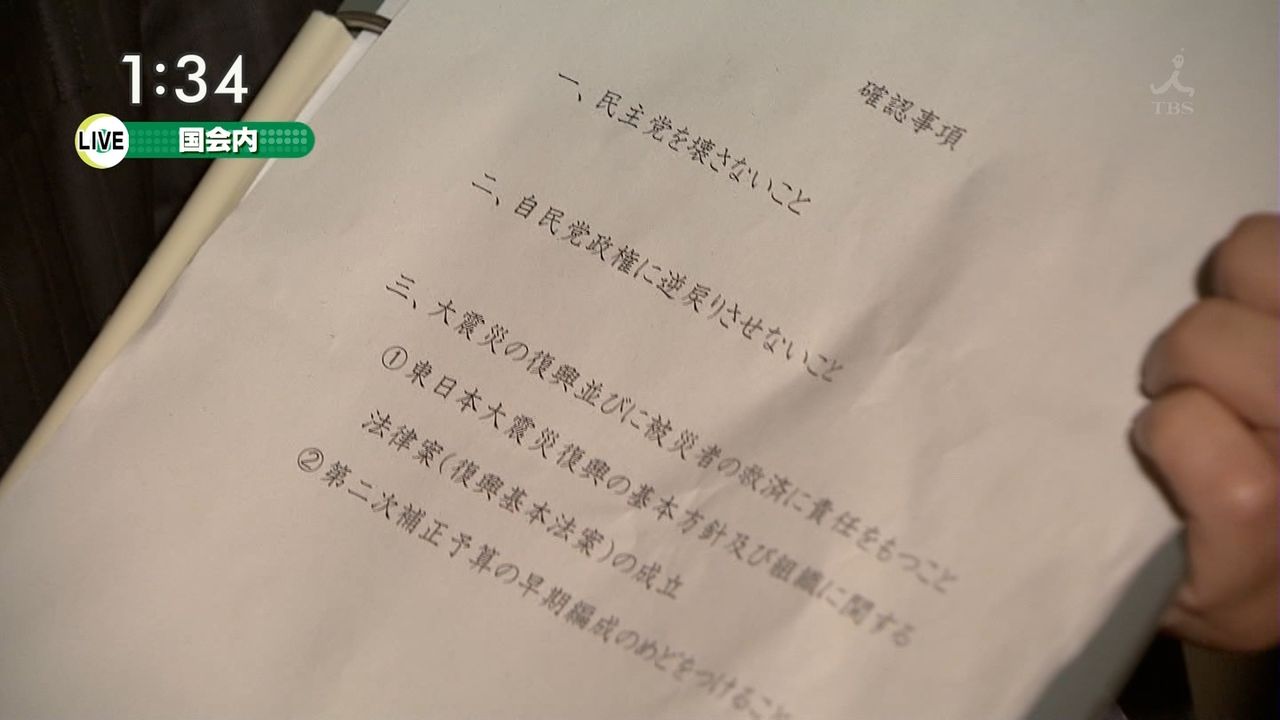 1:34
LIVE 国会内
TBS
確認事項
一、民主党を壊さないこと
二、自民党政権に逆戻りさせないこと
三、大震災の復興並びに被災者の救済に責任をもつこと
①東日本大震災復興の基本方針及び組織に関する
法律案(復興基本法案)の成立
②第二次補正予算の早期編成のめどをつけること